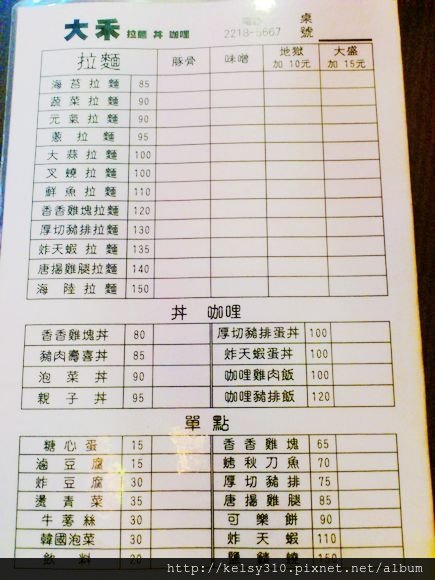 大禾 拉麵 丼 咖哩
桌號
拉麵 豚骨 味噌 地獄 加 10元 大盛 加 15元
海苔拉麵 85
蔬菜拉麵 90
元氣拉麵 90
蔥拉麵 95
大蒜拉麵 100
叉燒拉麵 100
鮮魚拉麵 110
香香雞塊拉麵 120
厚切豬排拉麵 130
炸天蝦拉麵 135
唐揚雞腿拉麵 140
海陸拉麵 150
丼 咖哩
香香雞塊丼 80 厚切豬排蛋丼 100
豬肉壽喜丼 85 炸天蝦蛋丼 100
泡菜丼 90 咖哩雞肉飯 100
親子丼 95 咖哩豬排飯 120
單點
糖心蛋 15 香香雞塊 65
滷豆腐 15 秋刀魚 70
炸豆腐 30 厚切豬排 75
燙青菜 35 唐揚雞腿 85
牛蒡絲 30 可樂餅 90
韓國泡菜 30 炸天蝦 95
飲料 20 150
http://kelsy310.pixnet.net/album